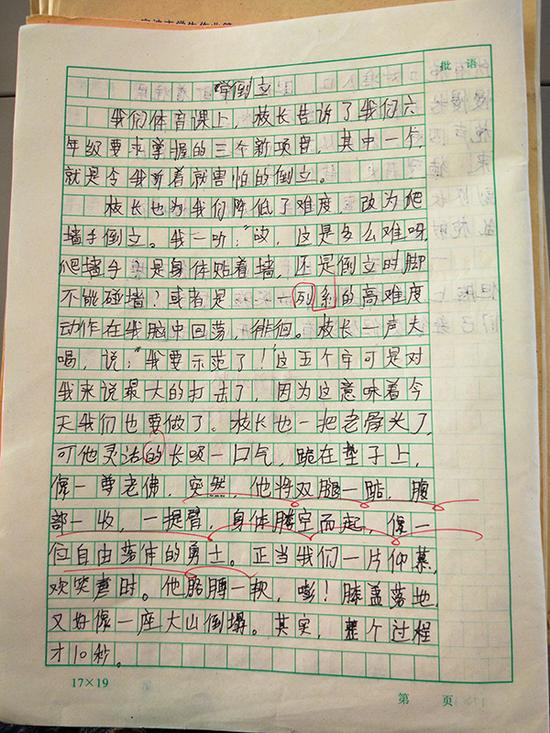 批语
学倒立
我们体育课上，校长告诉了我们六
年级要求掌握的三个新项目，其中一个
就是令我听着就害怕的倒立。
校长也为我们降低了难度，改为爬
墙手倒立。我一听，“哎，这是多么难呀，
爬墙手，是身体贴着墙，还是倒立时脚
不能碰墙？或者是……”一系列的高难度
动作在我脑中回荡，徘徊。校长一声大
喝，说：“我要示范了！”这五个字可是对
我来说最大的打击了，因为这意味着今
天我们也要做了。校长也一把老骨头了，
可他灵活的长吸一口气，跪在垫子上，
像一尊老佛，突然，他将双腿一踮，腹
部一收，一提臂，身体腾空而起，像一
位自由落体的勇士。正当我们一片仰慕，
欢笑着时。他胳膊一软，嘭！膝盖落地，
又好像一座大山倒塌。其实，整个过程
才10秒。
17×19
第 页